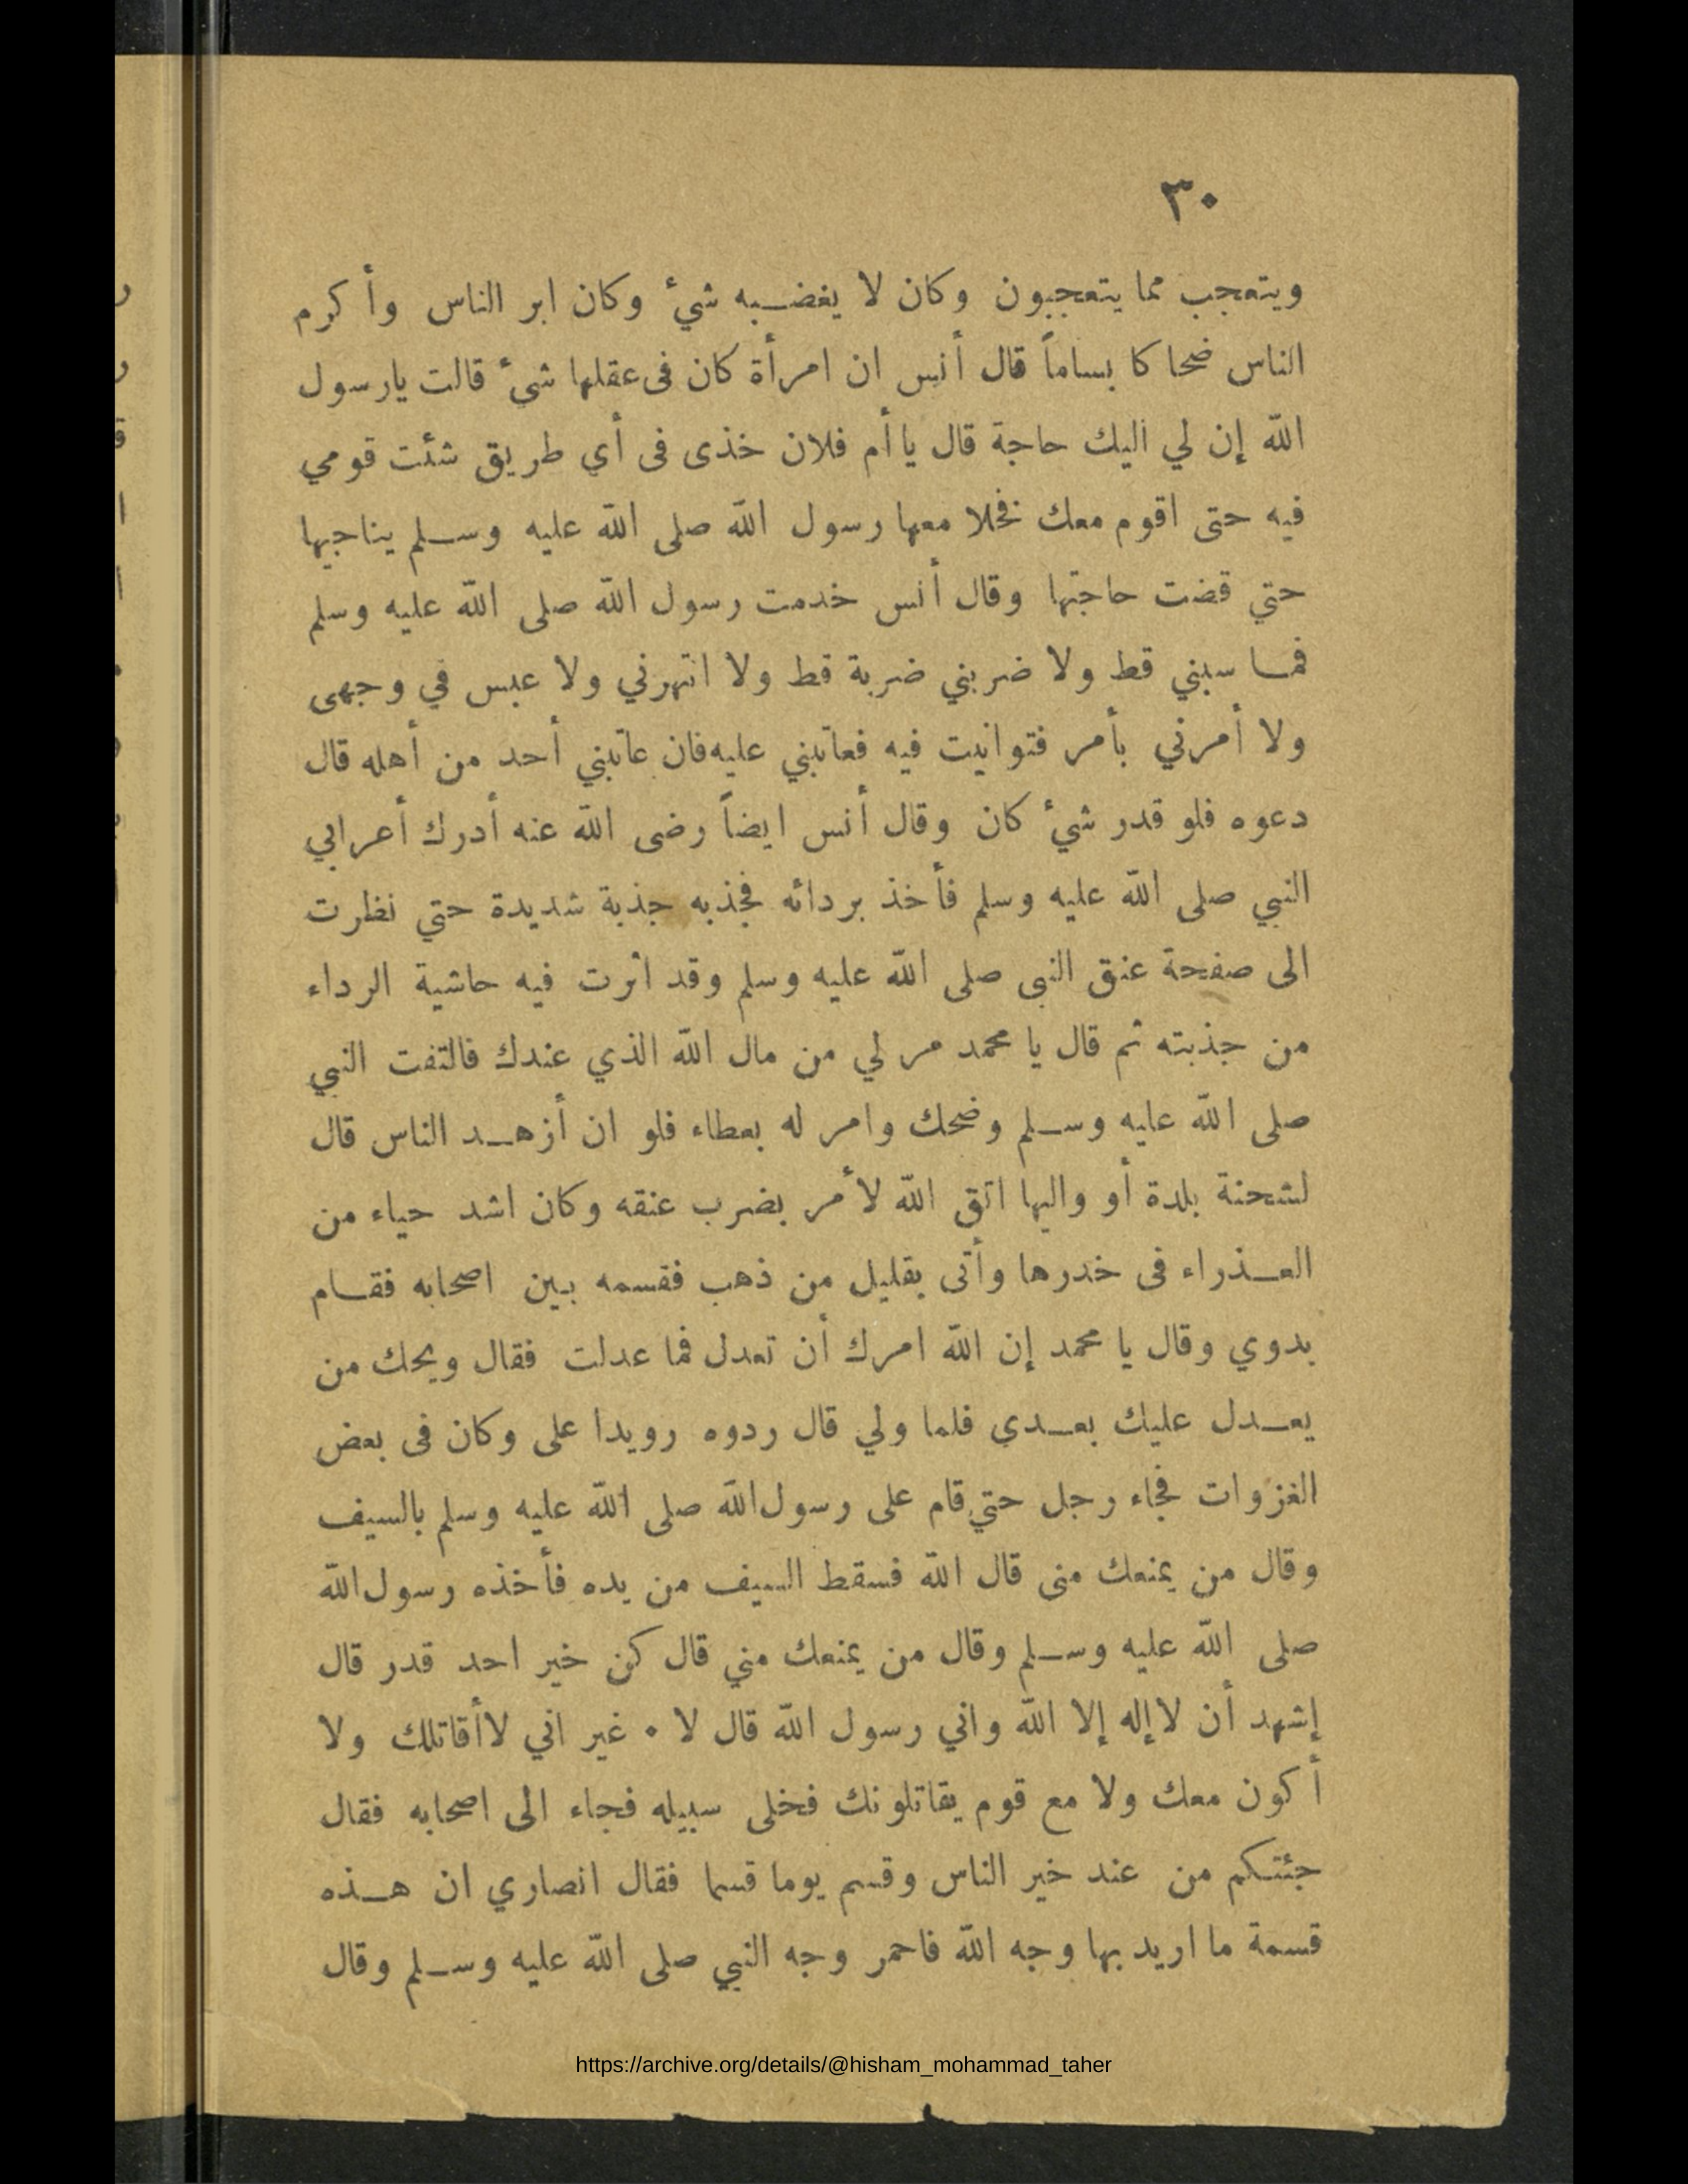 ٣٠
ويتعجب مما يتعجبون وكان لا يغضبه شيء وكان ابر الناس وأكرم
الناس ضحاكا بساماً قال أنس ان امرأة كان فى عقلها شيء قالت يارسول
الله إن لي اليك حاجة قال يا أم فلان خذى فى أي طريق شئت قومي
فيه حتى اقوم معك فخلا معها رسول الله صلى الله عليه وسلم يناجيها
حتي قضت حاجتها وقال أنس خدمت رسول الله صلى الله عليه وسلم
فما سبني قط ولا ضربني ضربة قط ولا انتهرني ولا عبس في وجهى
ولا أمرني بأمر فتوانيت فيه فعاتبني عليه فان عاتبني أحد من أهله قال
دعوه فلو قدر شيء كان وقال أنس ايضاً رضى الله عنه أدرك أعرابي
النبي صلى الله عليه وسلم فأخذ بردائه فجذبه جذبة شديدة حتي نظرت
الى صفحة عنق النبى صلى الله عليه وسلم وقد اثرت فيه حاشية الرداء
من جذبته ثم قال يا محمد مر لي من مال الله الذي عندك فالتفت النبي
صلى الله عليه وسلم وضحك وامر له بعطاء فلو ان أزهد الناس قال
لشحنة بلدة أو واليها اتق الله لأمر بضرب عنقه وكان اشد حياء من
العذراء فى خدرها وأتى بقليل من ذهب فقسمه بين اصحابه فقام
بدوي وقال يا محمد إن الله امرك أن تعدل فما عدلت فقال ويحك من
يعدل عليك بعدي فلما ولي قال ردوه رويدا على وكان فى بعض
الغزوات فجاء رجل حتي قام على رسول الله صلى الله عليه وسلم بالسيف
وقال من يمنعك منى قال الله فسقط السيف من يده فأخذه رسول الله
صلى الله عليه وسلم وقال من يمنعك مني قال كن خير احد قدر قال
إشهد أن لا إله إلا الله واني رسول الله قال لا ٠ غير اني لا أقاتلك ولا
أكون معك ولا مع قوم يقاتلونك فخلى سبيله فجاء الى اصحابه فقال
جئتكم من عند خير الناس وقسم يوما قسما فقال انصاري ان هذه
قسمة ما اريد بها وجه الله فاحمر وجه النبي صلى الله عليه وسلم وقال
https://archive.org/details/@hisham_mohammad_taher